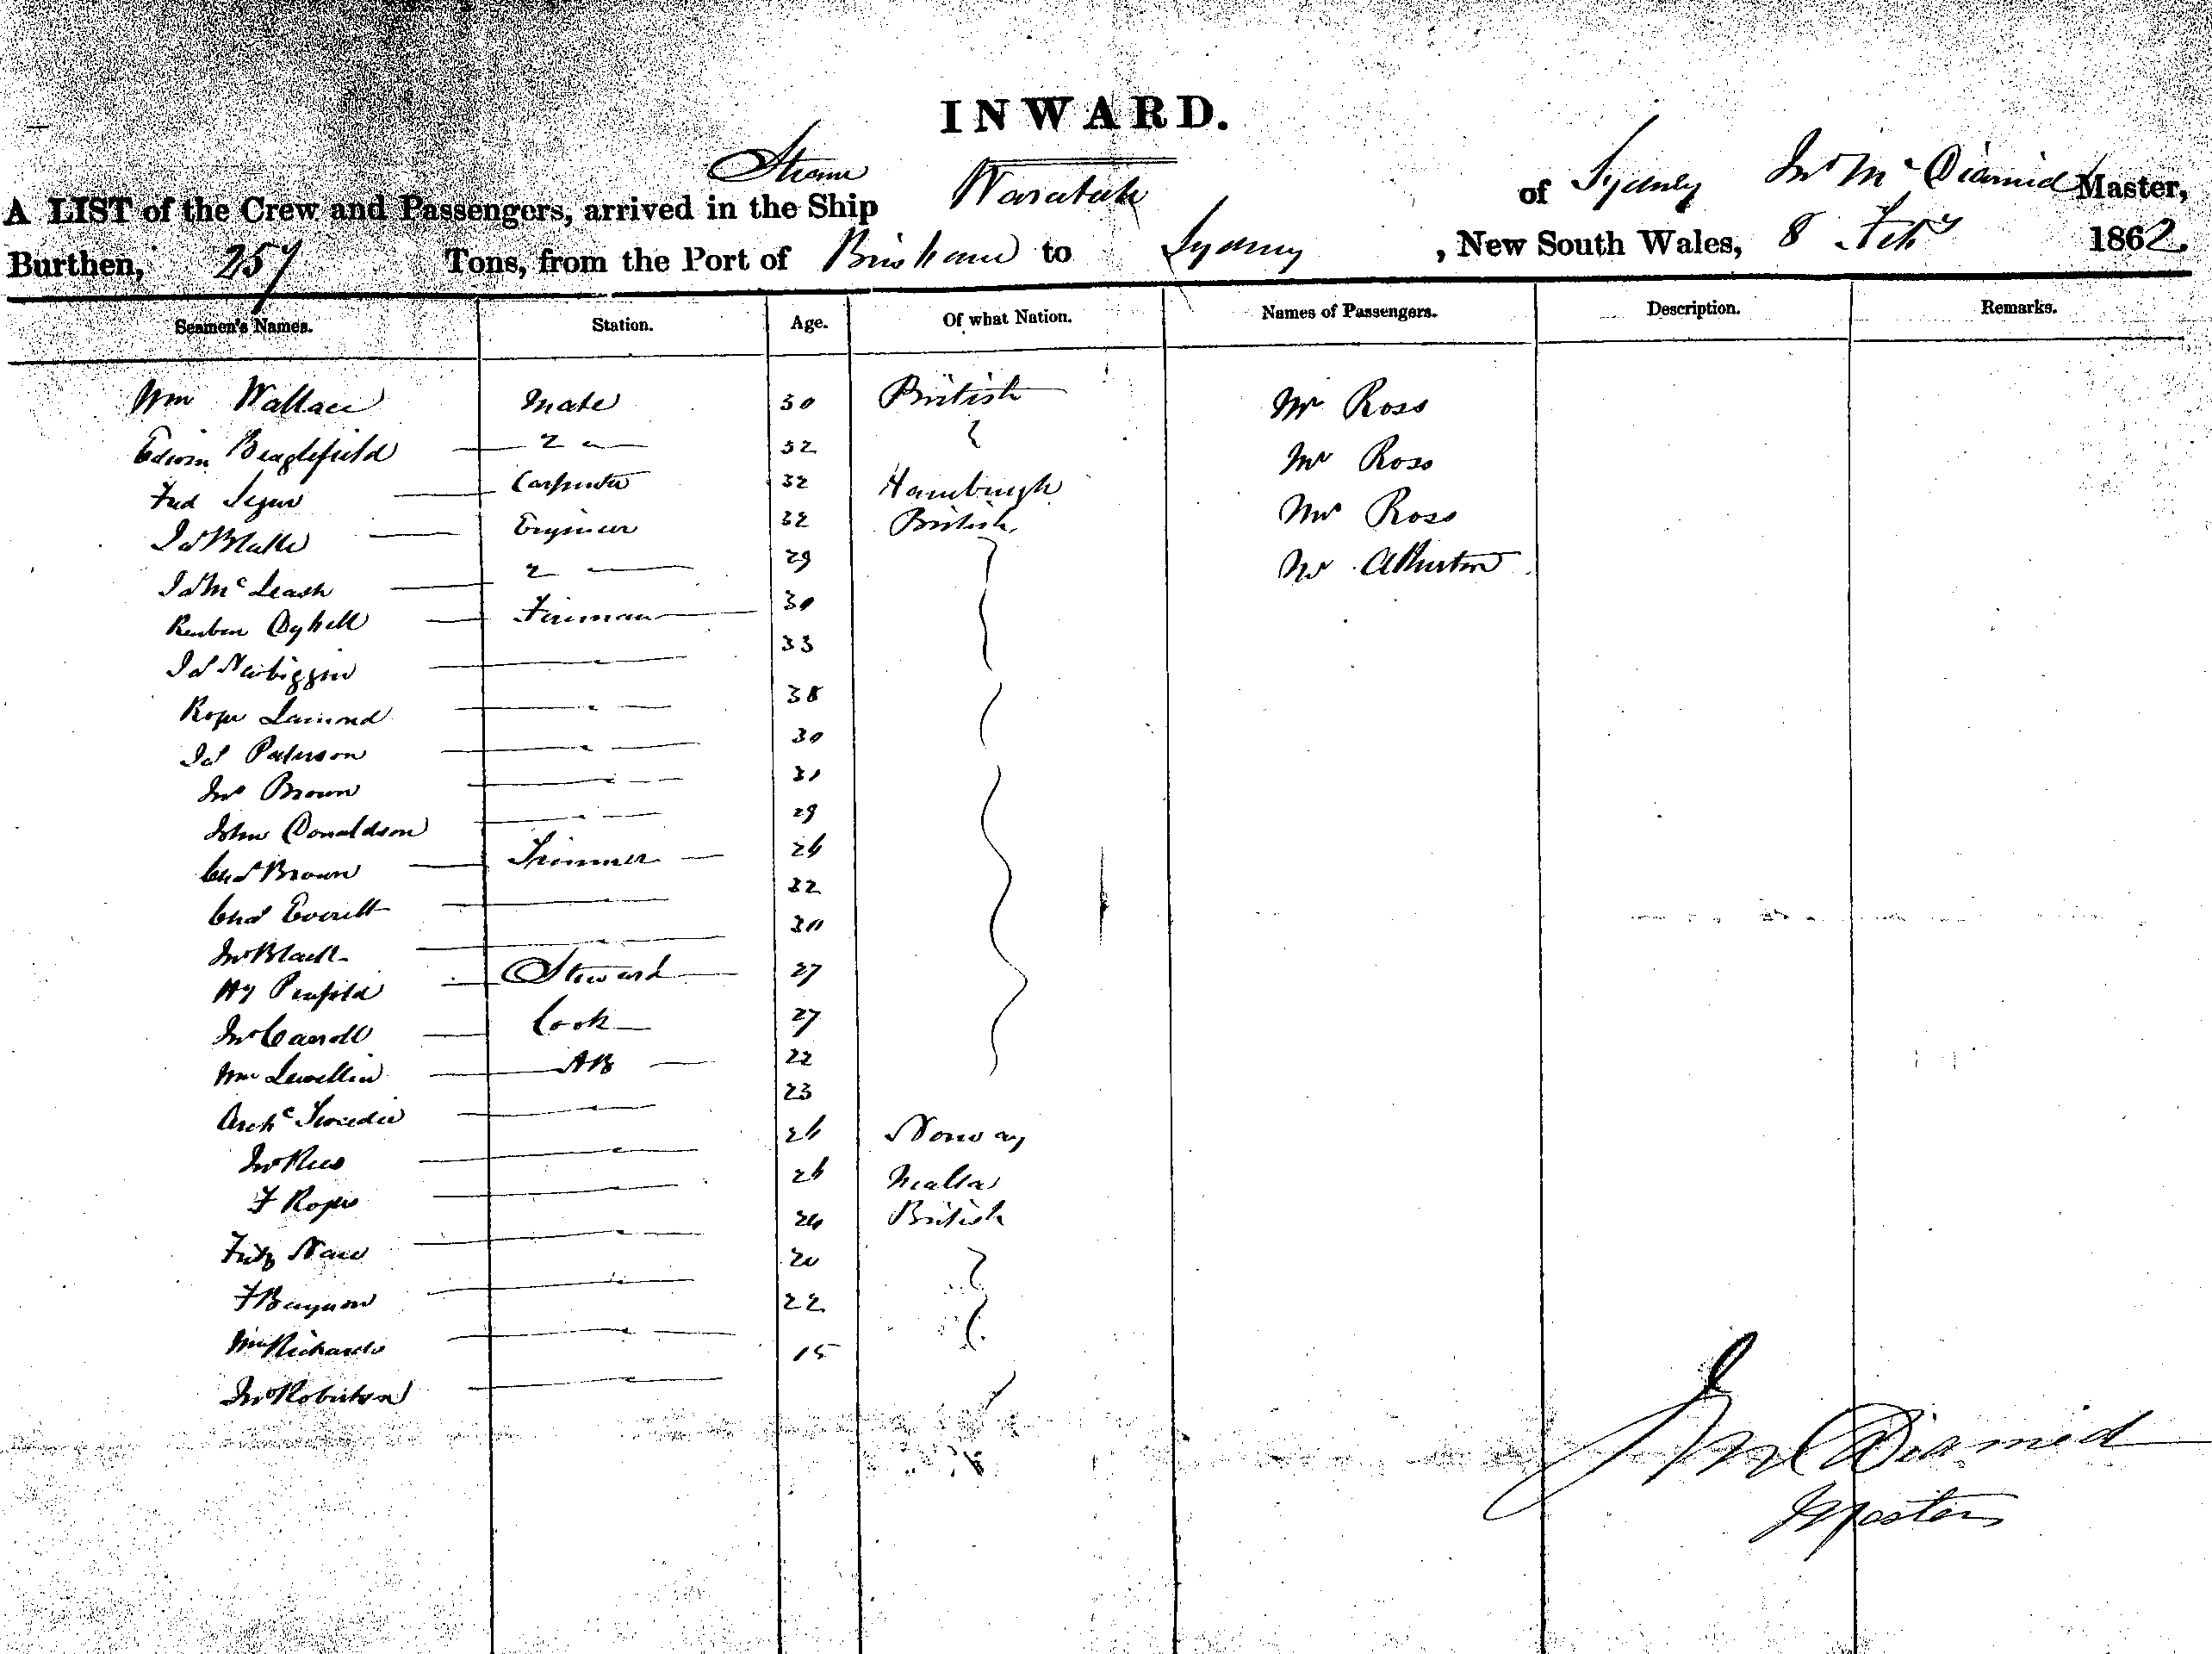 INWARD.
A LIST of the Crew and Passengers, arrived in the Ship Steamer Waratah of Sydney Jno McDiarmid Master,
Burthen, 257 Tons, from the Port of Brisbane to Sydney, New South Wales, 8 Feby 1862.
Seamen's Names. Station. Age. Of what Nation. Names of Passengers. Description. Remarks.
Wm Wallace Mate 30 British Mr Ross
Edwin 2 " 32 Mr Ross
Fred Carpenter 32 Hamburgh Mrs Ross
Engineer 32 British Mr Atherton
Jas McLeash 2 29
Reuben Fireman 30
Jas Newbiggin " 33
Lamond " 38
Jas Paterson " 30
Jno Brown " 31
John Donaldson " 29
Chas Brown Trimmer 26
Chas Everett " 32
Jno Black " 30
Hy Penfold Steward 27
Jno Carroll Cook 27
Wm Lewellin AB 22
Archd Tweedie " 23
Jno Rees " 26 Norway
F " 26 Malta
Fritz " 24 British
F " 20
Wm Richards " 22
Jno Robertson " 15
J McDiarmid
Master